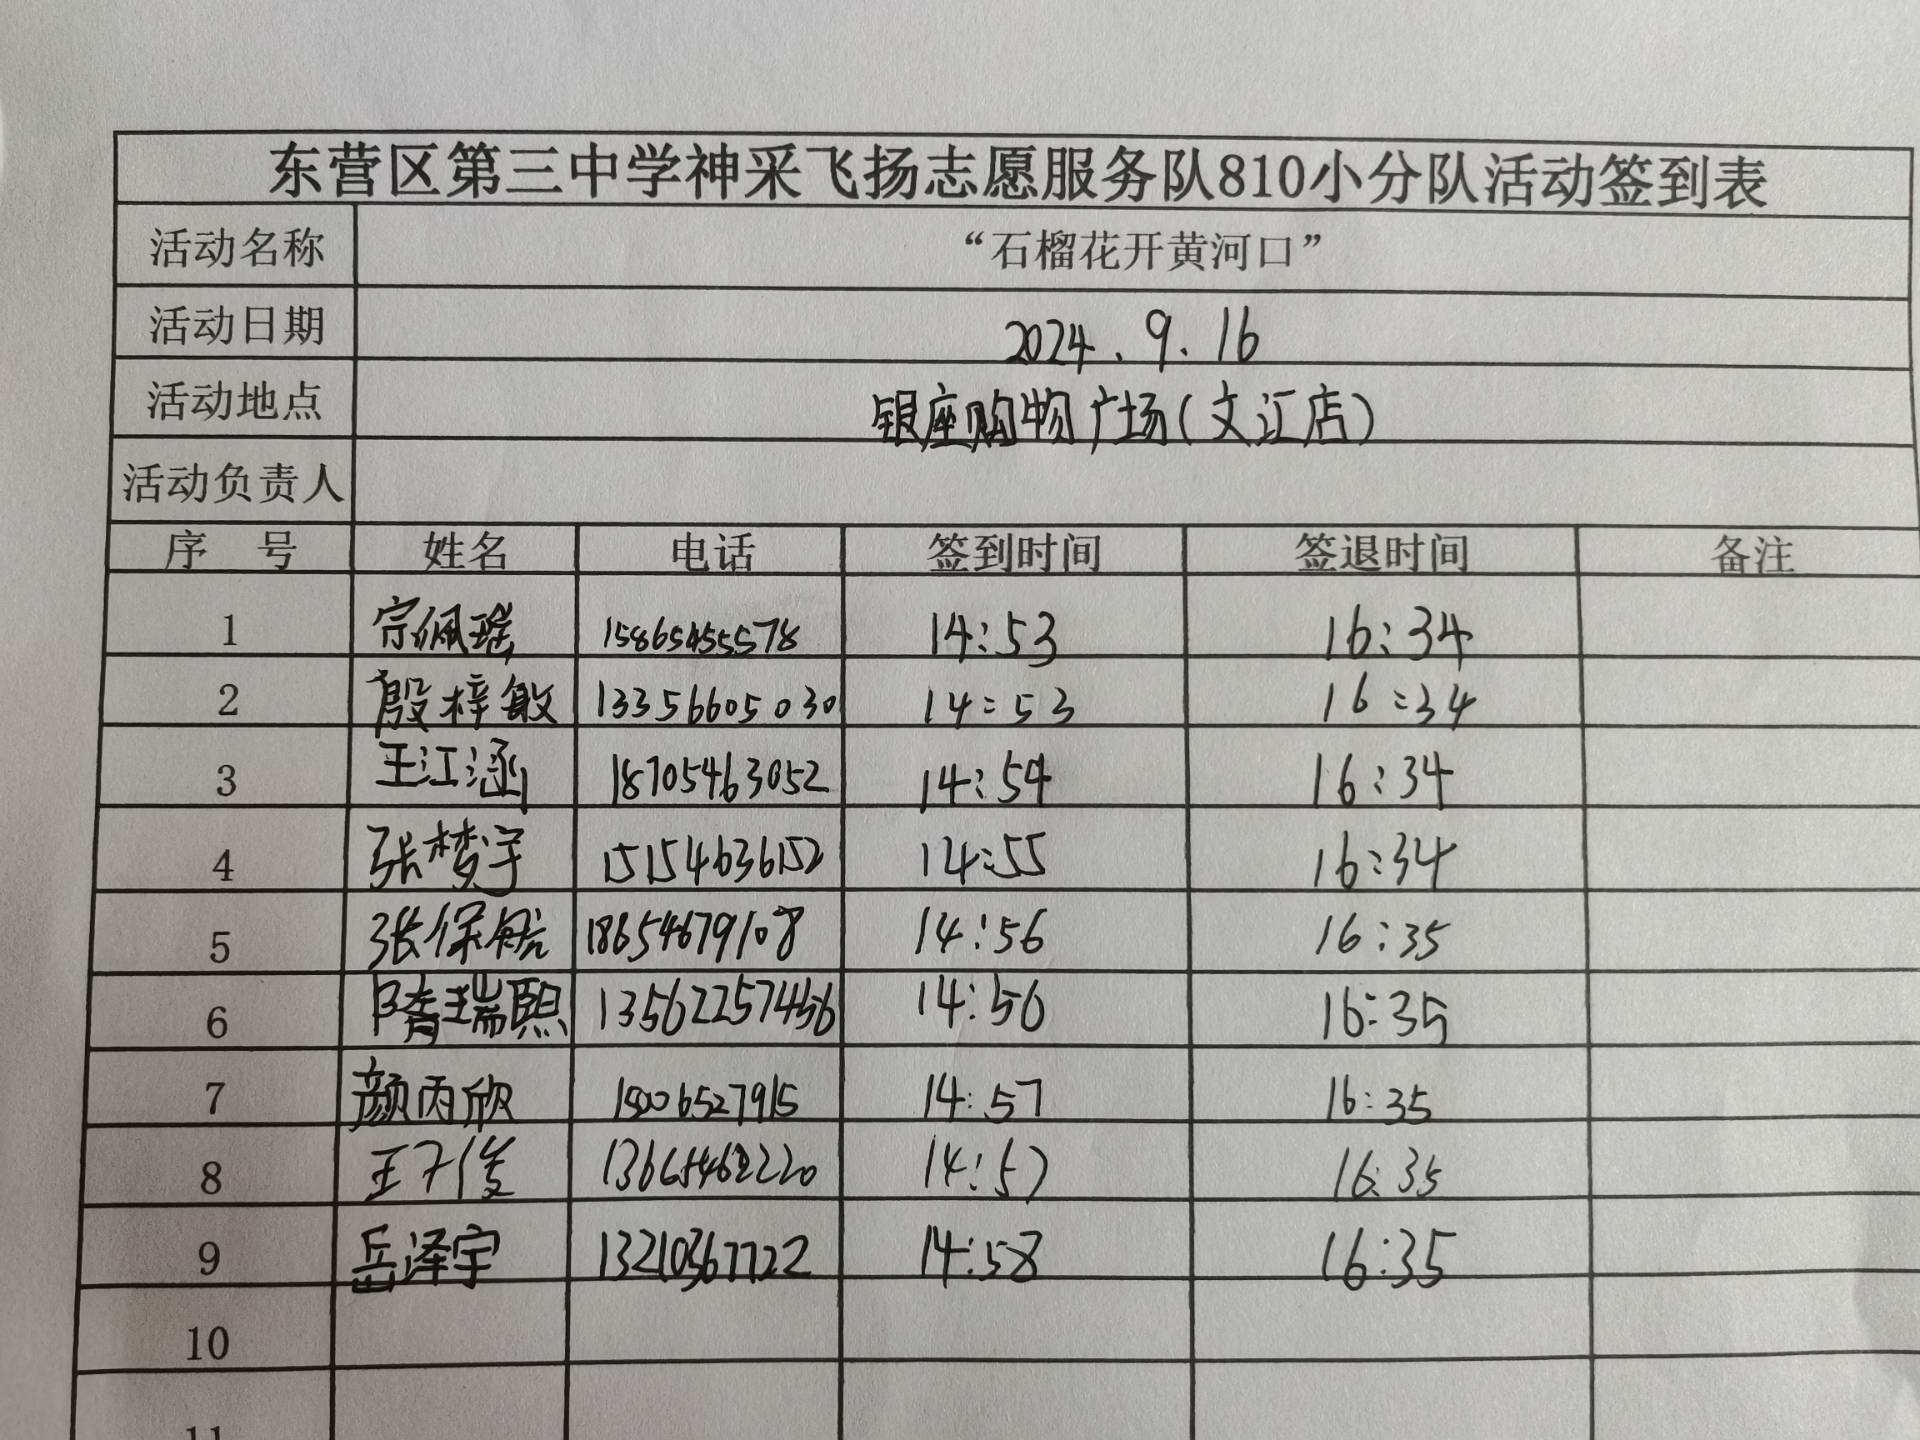 东营区第三中学神采飞扬志愿服务队810小分队活动签到表
活动名称 “石榴花开黄河口”
活动日期 2024.9.16
活动地点 银座购物广场(文汇店)
活动负责人
序 号 姓名 电话 签到时间 签退时间 备注
1 宗佩瑶 15865455578 14:53 16:34
2 殷梓敏 13356605030 14:53 16:34
3 王江涵 18705463052 14:54 16:34
4 张梦宇 15154636152 14:55 16:34
5 张保航 18654679108 14:56 16:35
6 隋瑞熙 13562257456 14:56 16:35
7 颜丙欣 15006527915 14:57 16:35
8 王子俊 14:57 16:35
9 岳泽宇 13210367722 14:58 16:35
10
11